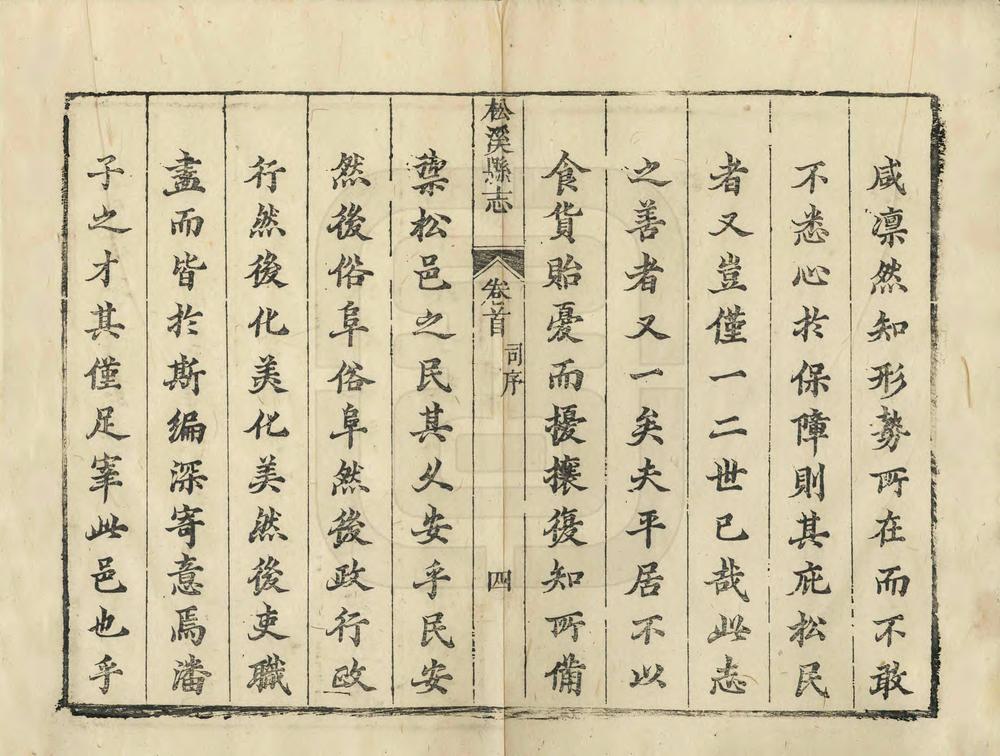 咸凛然知形勢所在而不敢
不悉心於保障則其庇松民
者又豈僅一二世已哉此志
之善者又一矣夫平居不以
食貨貽憂而擾攘復知所備
松溪縣志
卷首
司序
四
禦松邑之民其乂安乎民安
然後俗阜俗阜然後政行政
行然後化美化美然後吏職
盡而皆於斯編深寄意焉潘
子之才其僅足宰此邑也乎